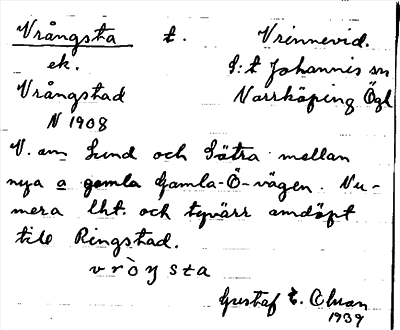 Vrångsta t. Vrinnevid.
ek. S:t Johannis sn
Vrångstad Norrköping Ögl
N 1908
V. om Lund och Sätra mellan
nya o gamla Gamla-Ö-vägen. Nu-
mera lht. och tyvärr omdöpt
till Ringstad.
Gustaf E. Olson
1939